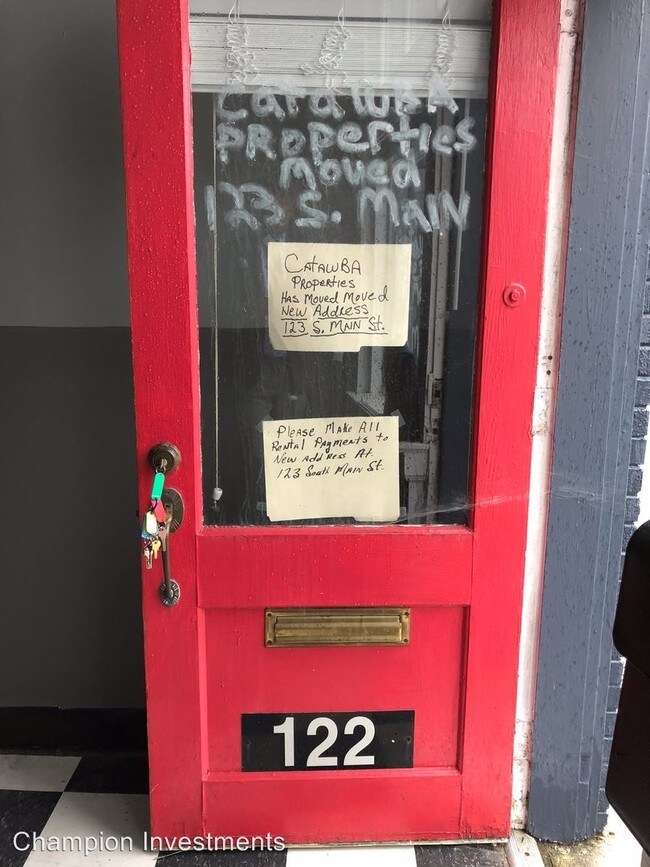 CATAWBA
PROPERTIES
MOVED
123 S. MAIN
CATAWBA
PROPERTIES
HAS MOVED MOVED
NEW ADDRESS
123 S. MAIN St.
PLEASE MAKE All
RENTAl PAYMENTS to
NEW ADDRESS At.
123 South MAIN St.
122
Champion Investments